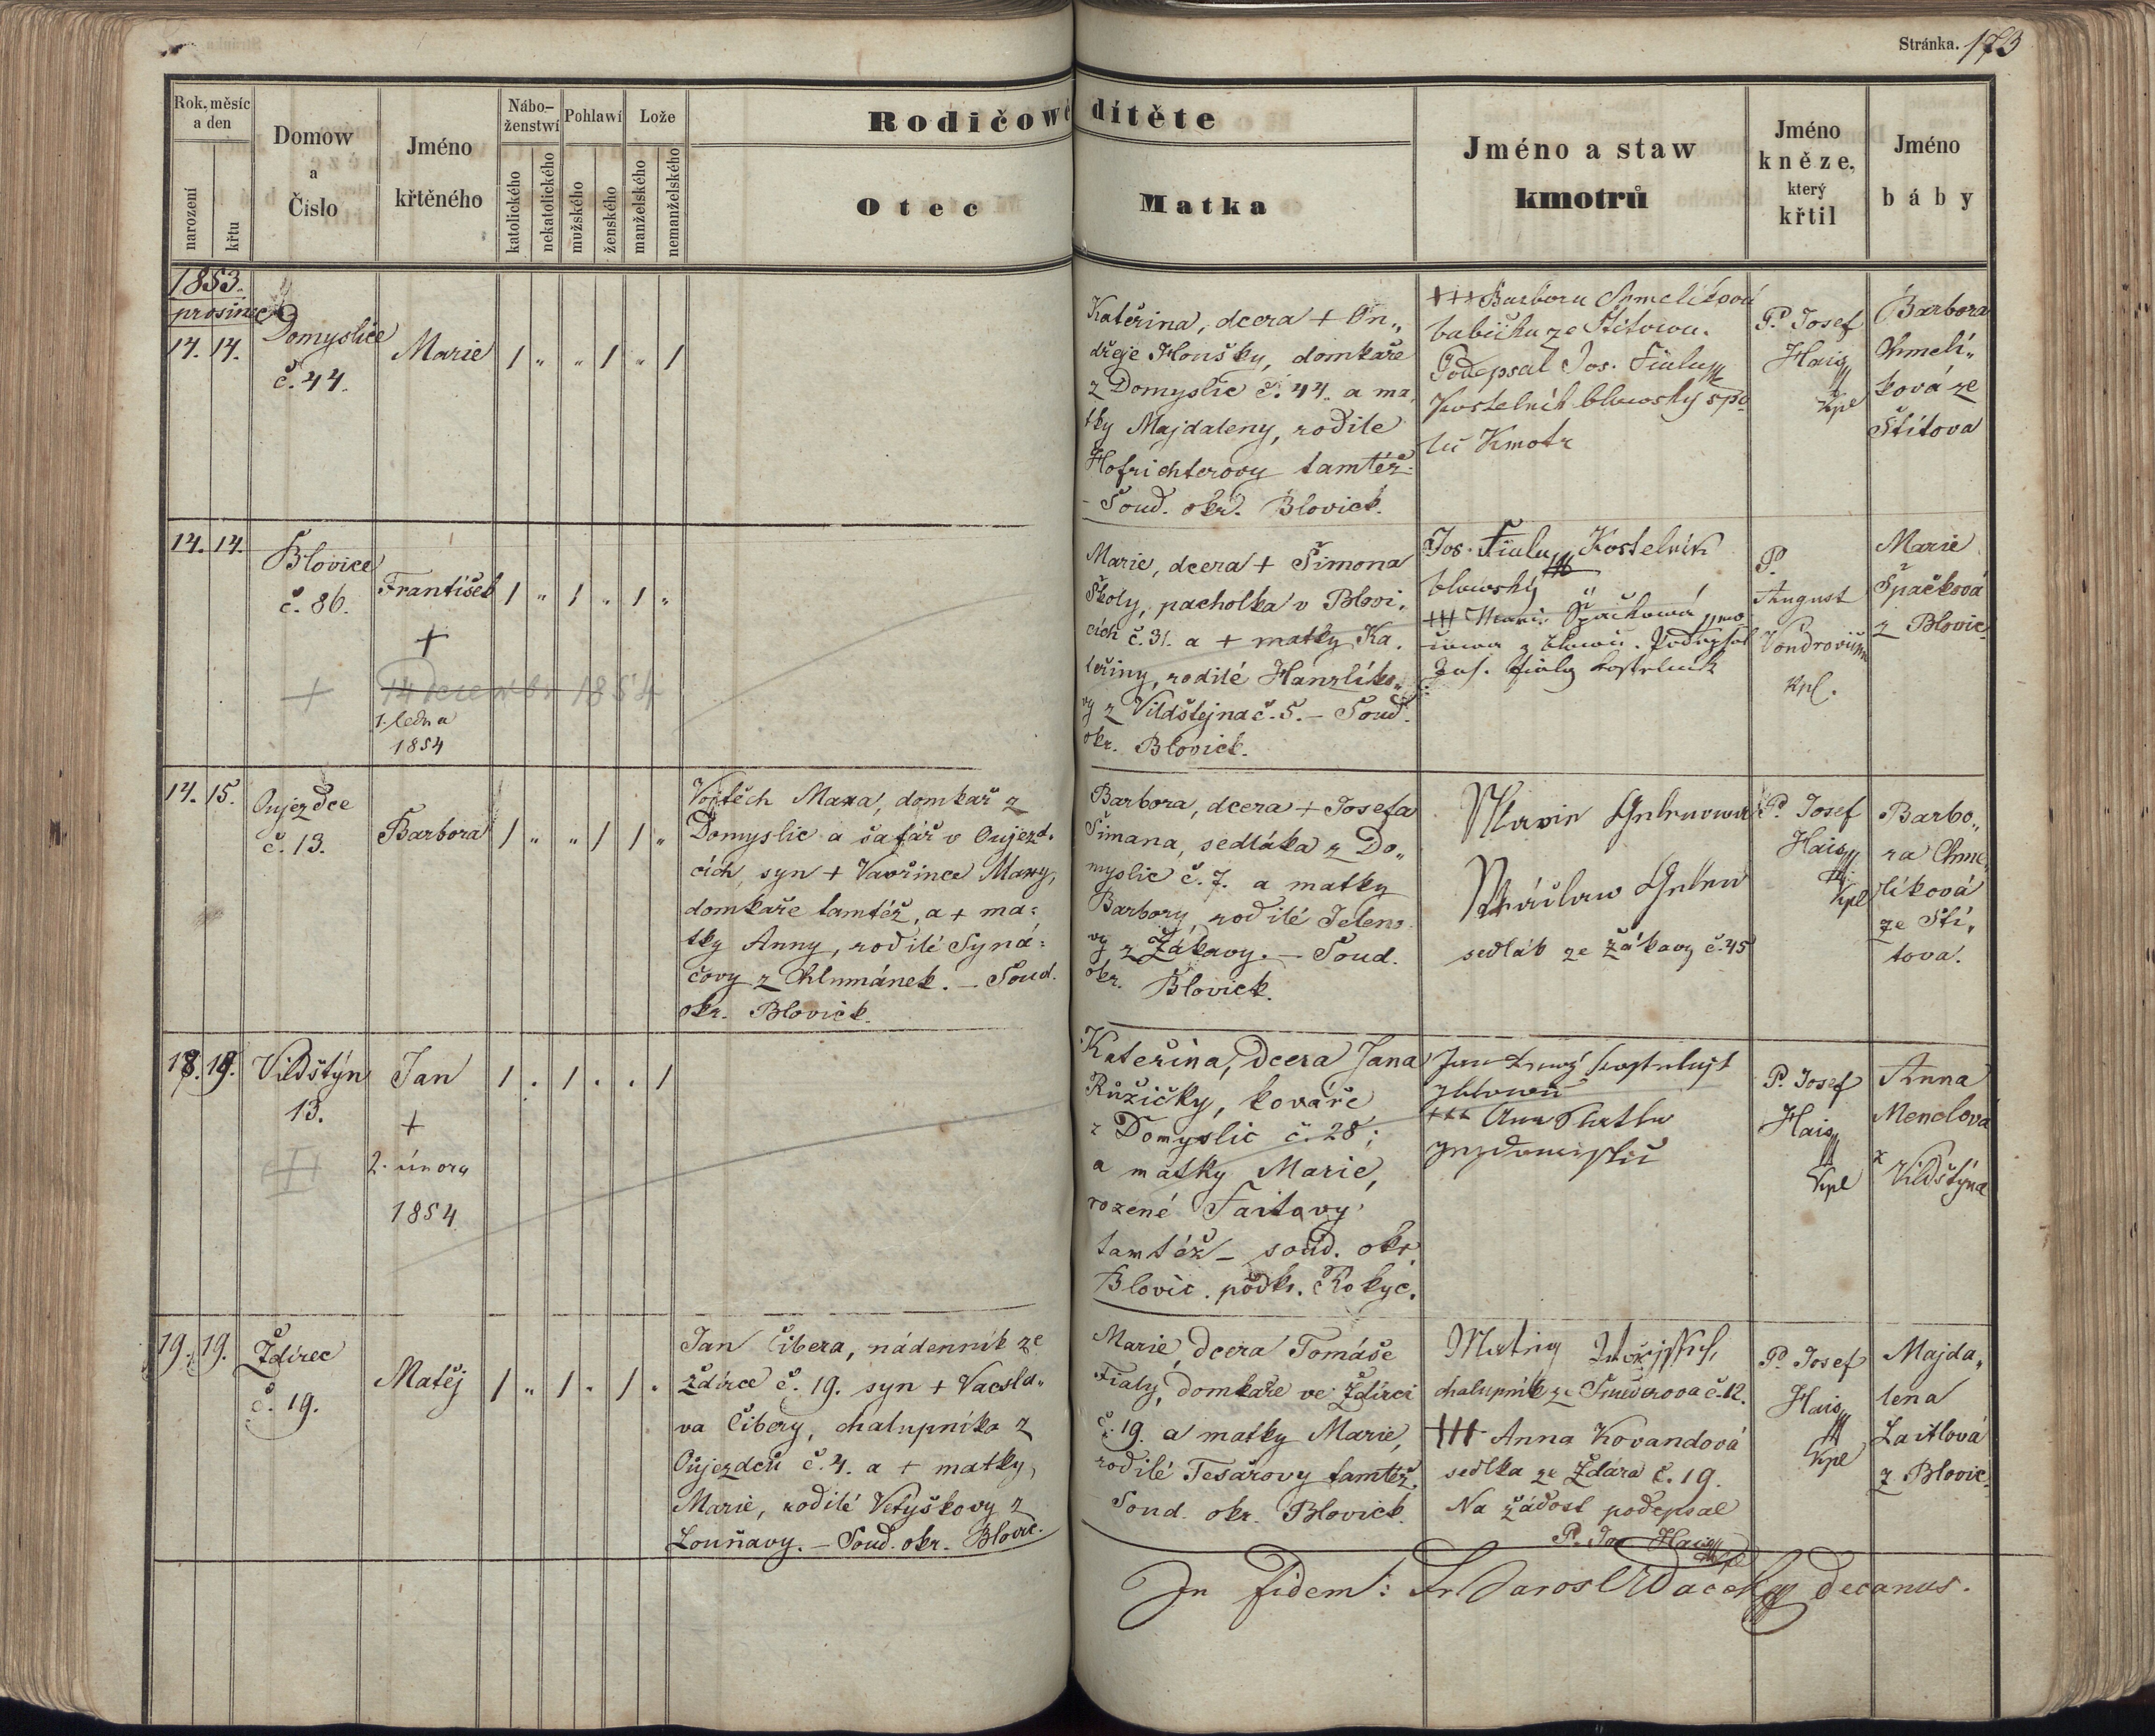 Stránka. 173
Rok, měsíc a den
narození
křtu
Domow
a
Čislo
Jméno
křtěného
Nábo-
ženstwí
katolického
nekatolického
Pohlawí
mužského
ženského
Lože
manželského
nemanželského
Rodičowé dítěte
Otec
Matka
Jméno a staw
kmotrů
Jméno
kněze,
který
křtil
Jméno
báby
1853.
prosinec
14. 14.
Domyslice
č. 44.
Marie
1 " " 1 " 1
Kateřina, dcera + On„
dřeje Houšky, domkaře
z Domyslic č. 44. a ma
tky Majdaleny, rodilé
Hofrichterovy tamtéž.
- Soud. okr. Blovick.
+++ Barbora Chmelíková
babička ze Štítowa.
Podepsal Jos. Fiala
Kostelník blowský spo
lu Kmotr
P. Josef
Hais
Kpl
Barbora
Chmelí„
ková ze
Štítova
14. 14.
Blovice
č. 86.
František
+
+
14 decembr 1854
1. ledna
1854
1 " 1 " 1 "
Marie, dcera + Šimona
Školy, pacholka v Blovi„
cích č. 31. a + matky Ka„
teřiny, rodilé Hanzlíko„
vy z Vildštejna č. 5. – Soud.
okr. Blovick.
Jos. Fiala Kostelník
blowský
+++ Marie Špačkowá
Podepsal
Jos. Fiala kostelník
P.
August
kpl.
Marie
Špačková
z Blovic
14. 15.
Oujezdce
č. 13.
Barbora
1 " " 1 1 "
Vojtěch Maxa, domkař z
Domyslic a šafář v Oujezd„
cích, syn + Vavřince Maxy,
domkaře tamtéž, a + ma=
tky Anny, rodilé Syná=
čovy z Chlumánek. – Soud.
okr. Blovick.
Barbora, dcera + Josefa
Šimana, sedláka z Do„
myslic č. 7. a matky
Barbory, rodilé Jeleno
vy z Žákavy. – Soud.
okr. Blovick.
sedlák ze Žákavy č. 45
P. Josef
Hais
Kpl
Barbo„
ra Chme„
líková
ze Ští„
tova.
18. 19.
Vildštýn
13.
Jan
+
2. února
1854
1 . 1 . . 1
Kateřina, dcera Jana
Růžičky, kováře
z Domyslic č. 28;
a matky Marie,
rozené Faitovy
tamtéž – soud. okr
Blovic. podkr. Rokyc.
+++ Anna
P. Josef
Hais
Kpl
Anna
Menclová
z
Vildštýna
19. 19.
Ždírec
č. 19.
Matěj
1 " 1 " 1 "
Jan Čibera, nádenník ze
Ždírce č. 19. syn + Vacsla„
va Čibery, chalupníka z
Oujezdců č. 4. a + matky
Marie, rodilé Vetýškovy z
Louňavy. – Soud. okr. Blovic.
Marie, dcera Tomáše
Fialy, domkaře ve Ždírci
č. 19. a matky Marie,
rodilé Tesařovy tamtéž.
Soud. okr. Blovick.
chalupník ze Smederova č. 12.
+++ Anna Kovandová
sedlka ze Ždára č. 19.
Na žádost podepsal
P. Jos Hais
kpl
P. Josef
Hais
Kpl
Majda„
lena
Laitlová
z Blovic
In fidem: decanus.